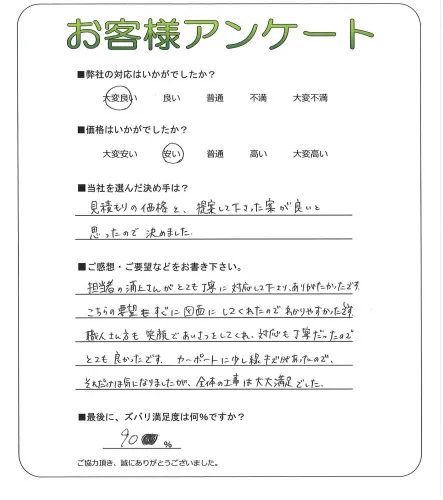 お客様アンケート
■弊社の対応はいかがでしたか？
大変良い 良い 普通 不満 大変不満
■価格はいかがでしたか？
大変安い 安い 普通 高い 大変高い
■当社を選んだ決め手は？
見積もりの価格と、提案して下さった案が良いと
思ったので決めました。
■ご感想・ご要望などをお書き下さい。
担当者の浦上さんがとても丁寧に対応して下さり、ありがたかったです。
こちらの要望もすぐに図面にしてくれたのでわかりやすかったです。
職人さん方も笑顔であいさつをしてくれ、対応も丁寧だったので
とても良かったです。カーポートに少し線キズがあったので、
それだけは気になりましたが、全体の工事は大大満足でした。
■最後に、ズバリ満足度は何％ですか？
90 ％
ご協力頂き、誠にありがとうございました。